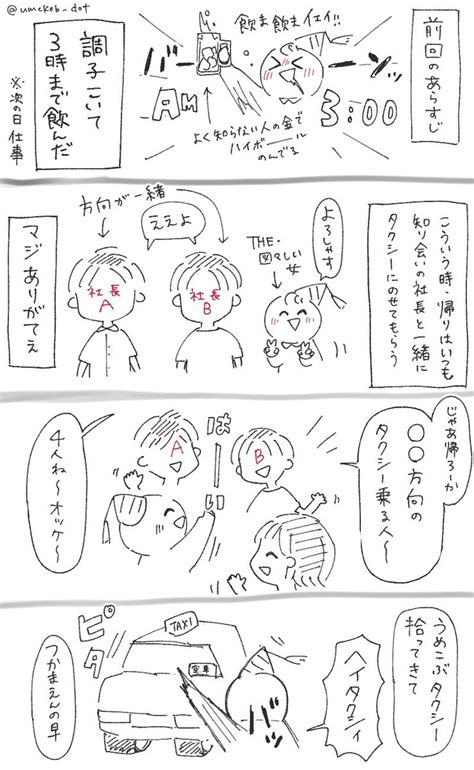 @umekob_dot
前回のあらすじ
飲ま飲まイェイ!!
バーン
AM
3:00
よく知らない人の金で
ハイボール
のんでる
調子こいて
3時まで飲んだ
※次の日仕事
こういう時、帰りはいつも
知り合いの社長と一緒に
タクシーにのせてもらう
よろしゃす
THE・
図々しい
女
方向が一緒
ええよ
社長
B
社長
A
マジありがてえ
じゃあ帰ろーか
〇〇方向の
タクシー乗る人〜
はーい
A
B
4人ね〜オッケ〜
うめこぶタクシー
拾ってきて
ヘイタクシィ
バッ
TAXI
空車
ピタ
つかまえんの早